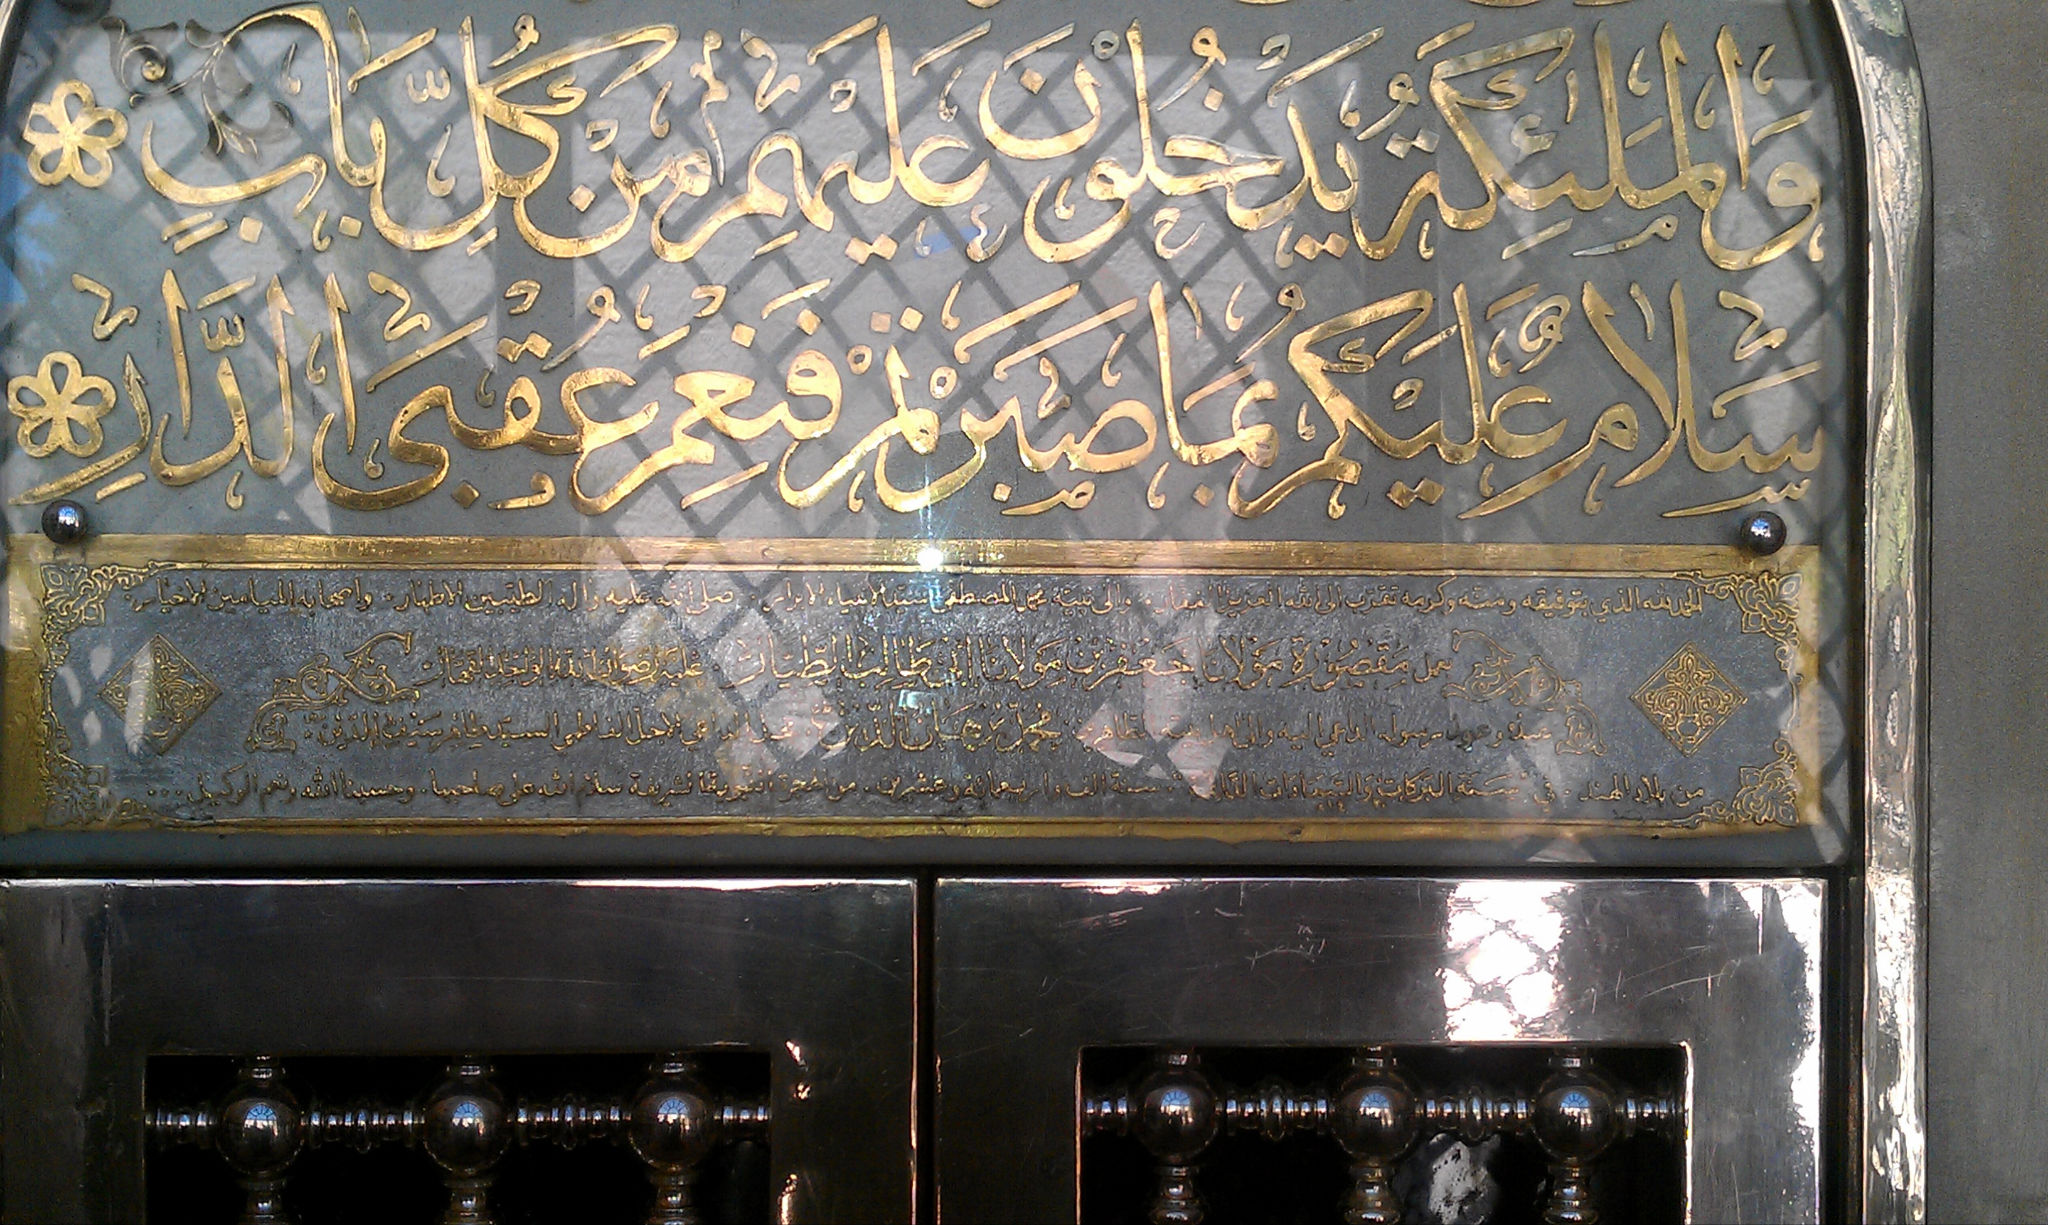 وَالْمَلٰئِكَةُ يَدْخُلُوْنَ عَلَيْهِمْ مِنْ كُلِّ بَابٍ
سَلَامٌ عَلَيْكُمْ بِمَا صَبَرْتُمْ فَنِعْمَ عُقْبَى الدَّارِ
الحمد لله الذي بتوفيقه ومنّه وكرمه تقرب الى الله العزيز الغفار. والى نبيه محمد المصطفى سيد الأنبياء الابرار. صلى الله عليه وآله الطيبين الاطهار. واصحابه الميامين الاخيار.
بعمل مَقْصُوْرَة مَوْلَانَا جَعْفَرِ بْنِ مَوْلَانَا ابِيْ طَالِبْ الطَّيَّارْ عليه رضوان الله
عبده وعبد رسوله الداعي اليه والى اهل بيته الطاهرين محمّد بُرْهَانُ الدِّيْن نجل الداعي الاجل الفاطمي السيّد طَاهِر سَيْفُ الدِّيْن
من بلاد الهند. في سنة الف واربعمائة وعشرين. من الهجرة النبوية الشريفة سلام الله على صاحبها. وحسبنا الله ونعم الوكيل